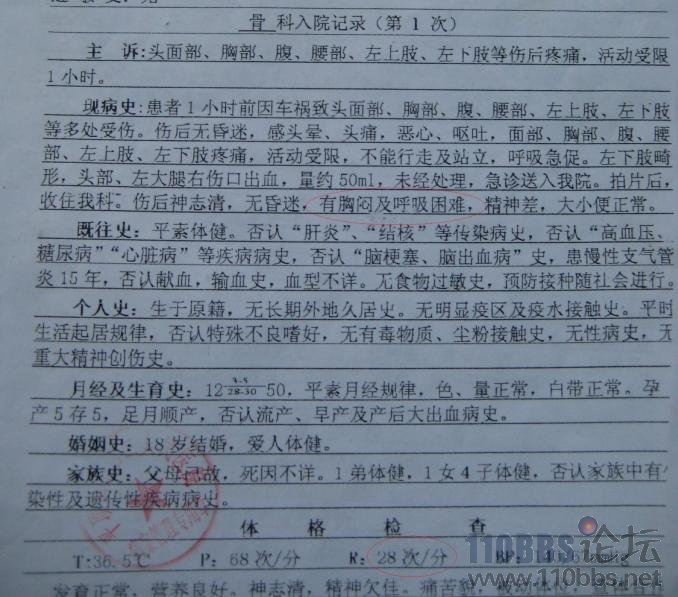 骨 科入院记录（第 1 次）
主 诉：头面部、胸部、腹、腰部、左上肢、左下肢等伤后疼痛，活动受限
1小时。
现病史：患者1小时前因车祸致头面部、胸部、腹、腰部、左上肢、左下肢
等多处受伤。伤后无昏迷，感头晕、头痛，恶心、呕吐，面部、胸部、腹、腰
部、左上肢、左下肢疼痛，活动受限，不能行走及站立，呼吸急促。左下肢畸
形，头部、左大腿右伤口出血，量约50ml，未经处理，急诊送入我院。拍片后，
收住我科。伤后神志清，无昏迷，有胸闷及呼吸困难，精神差，大小便正常。
既往史：平素体健。否认“肝炎”、“结核”等传染病史，否认“高血压、
糖尿病”“心脏病”等疾病病史，否认“脑梗塞、脑出血病”史，患慢性支气管
炎15年，否认献血，输血史，血型不详。无食物过敏史，预防接种随社会进行。
个人史：生于原籍，无长期外地久居史。无明显疫区及疫水接触史。平时
生活起居规律，否认特殊不良嗜好，无有毒物质、尘粉接触史，无性病史，无
重大精神创伤史。
月经及生育史：12 3-5/28-30 50，平素月经规律，色、量正常，白带正常。孕
产5存5，足月顺产，否认流产、早产及产后大出血病史。
婚姻史：18岁结婚，爱人体健。
家族史：父母已故，死因不详。1弟体健，1女4子体健，否认家族中有
染性及遗传性疾病病史。
体 格 检 查
T:36.5℃ P: 68次/分 R: 28次/分 BP:
发育正常，营养良好。神志清，精神欠佳。痛苦貌，被动体位，
110BBS论坛
www.110bbs.net